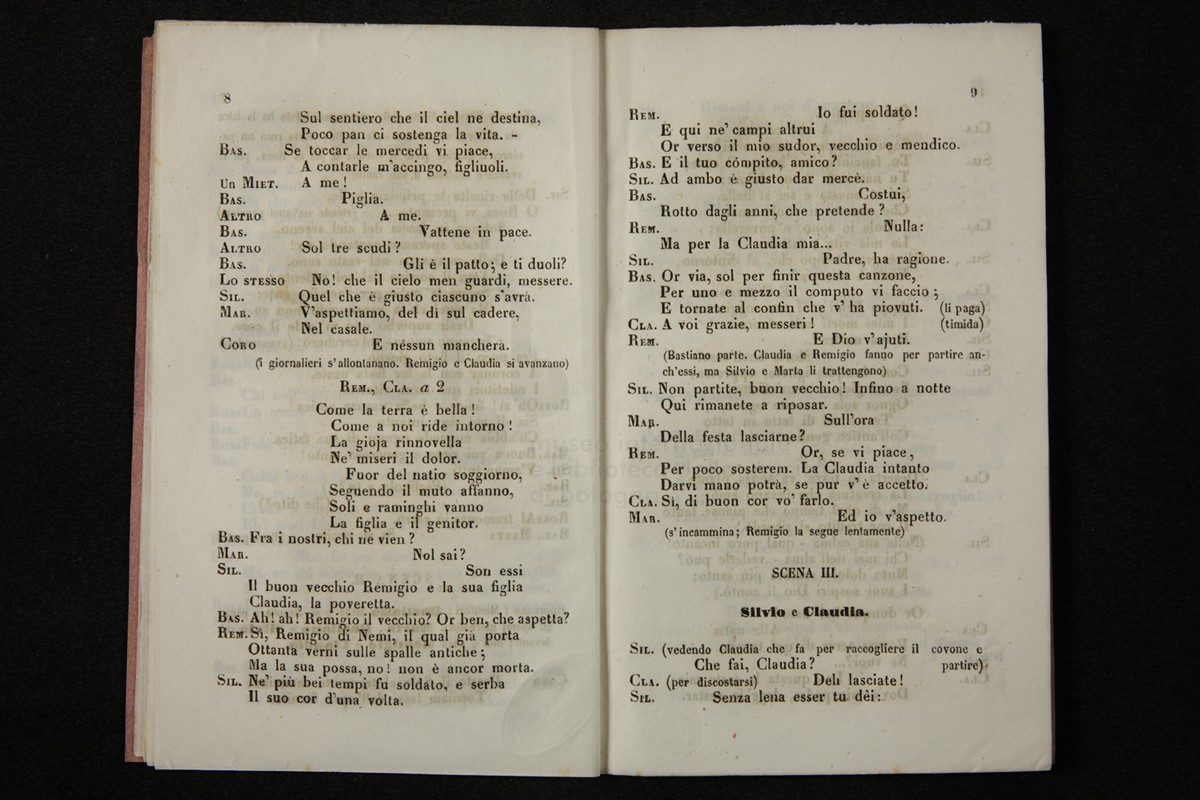 8
Sul sentiero che il ciel ne destina,
Poco pan ci sostenga la vita. -
BAS. Se toccar le mercedi vi piace,
A contarle m'accingo, figliuoli.
Un MIET. A me!
BAS. Piglia.
ALTRO A me.
BAS. Vattene in pace.
ALTRO Sol tre scudi?
BAS. Gli è il patto; e ti duoli?
LO STESSO No! che il cielo men guardi, messere.
SIL. Quel che è giusto ciascuno s'avrà.
MAR. V'aspettiamo, del dì sul cadere,
Nel casale.
CORO E nessun mancherà.
(i giornalieri s'allontanano. Remigio e Claudia si avanzano)
REM., CLA. a 2
Come la terra è bella!
Come a noi ride intorno!
La gioja rinnovella
Ne' miseri il dolor.
Fuor del natio soggiorno,
Seguendo il muto affanno,
Soli e raminghi vanno
La figlia e il genitor.
BAS. Fra i nostri, chi ne vien?
MAR. Nol sai?
SIL. Son essi
Il buon vecchio Remigio e la sua figlia
Claudia, la poveretta.
BAS. Ah! ah! Remigio il vecchio? Or ben, che aspetta?
REM. Sì, Remigio di Nemi, il qual già porta
Ottanta verni sulle spalle antiche;
Ma la sua possa, no! non è ancor morta.
SIL. Ne' più bei tempi fu soldato, e serba
Il suo cor d'una volta.
9
REM. Io fui soldato!
E qui ne' campi altrui
Or verso il mio sudor, vecchio e mendico.
BAS. E il tuo cómpito, amico?
SIL. Ad ambo è giusto dar mercè.
BAS. Costui,
Rotto dagli anni, che pretende?
REM. Nulla:
Ma per la Claudia mia...
SIL. Padre, ha ragione.
BAS. Or via, sol per finir questa canzone,
Per uno e mezzo il computo vi faccio;
E tornate al confin che v' ha piovuti. (li paga)
CLA. A voi grazie, messeri! (timida)
REM. E Dio v'ajuti.
(Bastiano parte. Claudia e Remigio fanno per partire an-
ch'essi, ma Silvio e Marta li trattengono)
SIL. Non partite, buon vecchio! Infino a notte
Qui rimanete a riposar.
MAR. Sull'ora
Della festa lasciarne?
REM. Or, se vi piace,
Per poco sosterem. La Claudia intanto
Darvi mano potrà, se pur v'è accetto.
CLA. Sì, di buon cor vo' farlo.
MAR. Ed io v'aspetto.
(s'incammina; Remigio la segue lentamente)
SCENA III.
Silvio e Claudia.
SIL. (vedendo Claudia che fa per raccogliere il covone e
Che fai, Claudia? partire)
CLA. (per discostarsi) Deh lasciate!
SIL. Senza lena esser tu dêi: